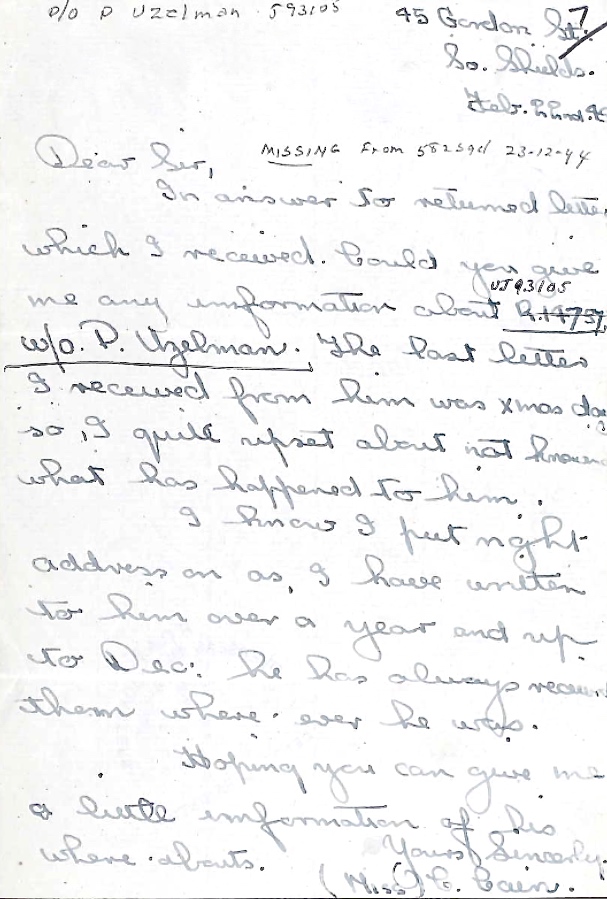 P/O P UZelman J93105
45 Gordon St. 7
So. Shields.
Feb. 22nd.
Dear Sir,
MISSING From 582 Sqd 23-12-44
In answer to returned letter
which I received. Could you give
me any imformation about
J93105
w/o. P. Uzelman. The last letter
I received from him was xmas day
so, I quite upset about not
what has happened to him.
I know I put right
address on as, I have written
to him over a year and up
to Dec: he has always
them where.ever he was.
Hoping you can give me
a little imformation of his
where.abouts. Yours Sincerly.
(Miss) C. Cain.